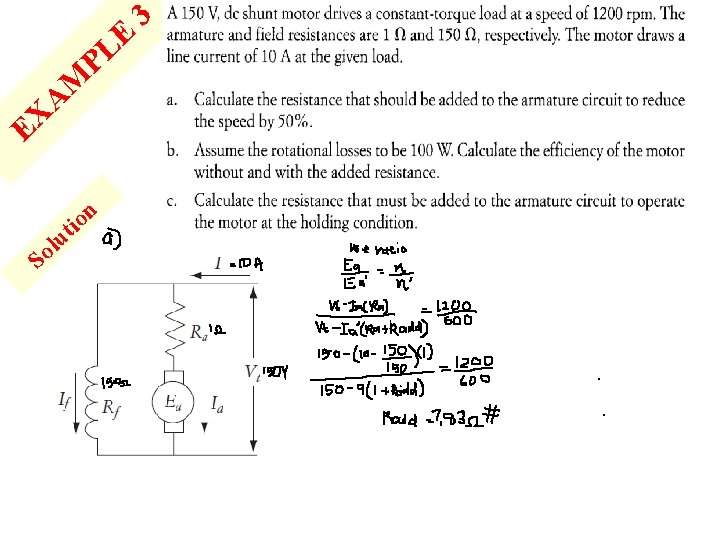 EXAMPLE 3
A 150 V, dc shunt motor drives a constant-torque load at a speed of 1200 rpm. The
armature and field resistances are 1 Ω and 150 Ω, respectively. The motor draws a
line current of 10 A at the given load.
a. Calculate the resistance that should be added to the armature circuit to reduce
the speed by 50%.
b. Assume the rotational losses to be 100 W. Calculate the efficiency of the motor
without and with the added resistance.
c. Calculate the resistance that must be added to the armature circuit to operate
the motor at the holding condition.
Solution
a)
Use ratio
Ea/Ea' = n/n'
I = 10A
Vt-Ia(Ra)/Vt-Ia'(Ra+Radd) = 1200/600
Ra 1Ω
150-(10-150/150)(1)/150-9(1+Radd) = 1200/600
Vt 150V
150Ω
If Rf Ea Ia
Radd = 7.83Ω #